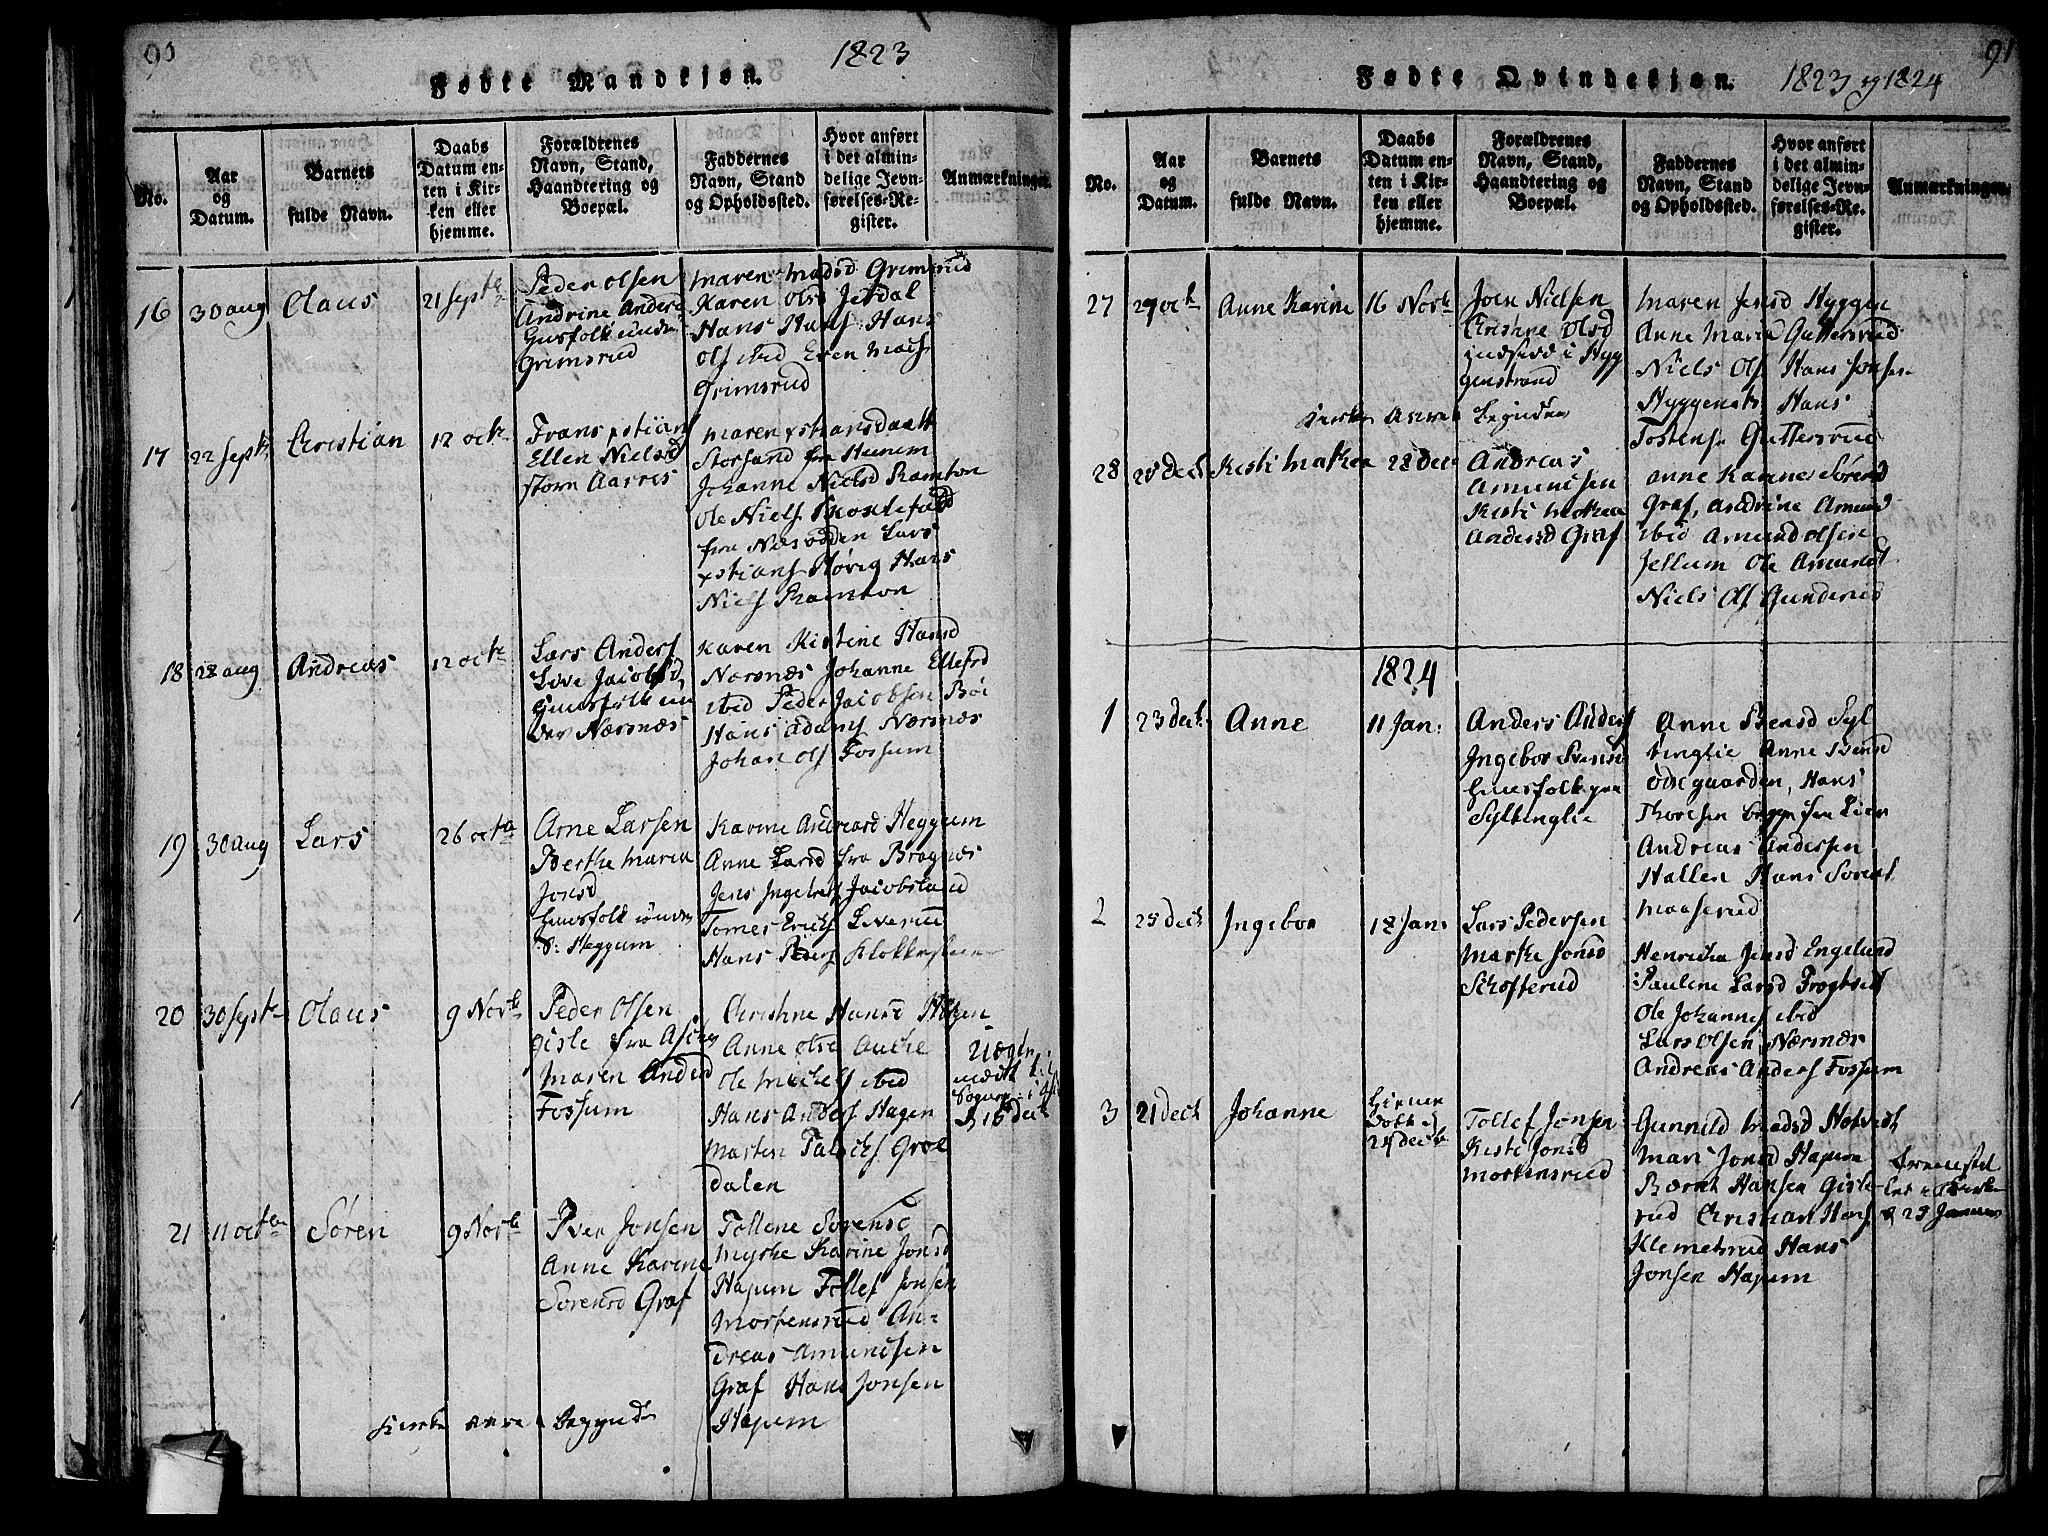 90
Fødte Mandkjøn.
1823
No.
Aar
og
Datum.
Barnets
fulde Navn.
Daabs
Datum en-
ten i Kir-
ken eller
hjemme.
Forældrenes
Navn, Stand,
Haandtering og
Boepæl.
Faddernes
Navn, Stand
og Opholdssted.
Hvor anført
i det almin-
delige Jevn-
førelses-Re-
gister.
Anmærkninger.
16
30 aug
Olaus
21 sept
Peder Olsen
Andrine Anders
Grimsrud
Maren Madsd Grimsrud
Karen Olsd Jerdal
Hans Hans Hans
Ols ibid Even
Grimsrud
17
22 sept
Christian
12 oct
Frans xstians
Ellen Nielsd
Maren xstiansdaatt
Storsand fra Hurum
Johanne Nielsd Ramton
Ole Niels
fra Nesodden Lars
xstians Høvig Hans
Niels Ramton
18
28 aug
Andreas
12 oct
Lars Anders
Live Jacobsd
Huusfolk un
der Nærsnæs
Karen Kistine Hansd
Nærsnæs Johanne Ellefsd
ibid Peder Jacobsen Bøe
Hans Adams Nærsnæs
Johan Ols Fossum
19
30 aug
Lars
26 octo
Arne Larsen
Berthe Maria
Jonsd
Huusfolk under
Heggum
Karine Andreasd Heggum
Anne Larsd fra Bragnæs
Jens Jacobsland
Erichs
Hans Peders
20
30 sept
Olaus
9 Nov
Peder Olsen
Gisle fra Asker
Maren Andersd
Fossum
Christine Hansd
Anne Olsd
Ole Michels ibid
Hans Anders Hagen
Morten
dalen
Uægte
21
11 octo
Søren
9 Nov
Iver Jonsen
Anne Karine
Sørensd Graf
Tollene Sørensd
Myhre Karine Jonsd
Hajum Tollef Jonsen
Mortensrud An-
dreas Amundsen
Graf Hans Jonsen
Hajum
91
Fødte Qvindekjøn.
1823 og 1824
No.
Aar
og
Datum.
Barnets
fulde Navn.
Daabs
Datum en-
ten i Kir-
ken eller
hjemme.
Forældrenes
Navn, Stand,
Haandtering og
Boepæl.
Faddernes
Navn, Stand
og Opholdssted.
Hvor anført
i det almin-
delige Jevn-
førelses-Re-
gister.
Anmærkninger.
27
27 oct
Anne Karine
16 Nov
Joen Nielsen
Christine Olsd
i Hyg
genstrand
Maren Jensd Hyggen
Anne Maria Guttersrud
Niels Ols Hans Jonsen
Hans
Tostens Guttersrud
28
25 Dec
Kisti Mathea
28 Dec
Andreas
Amundsen
Kisti Mathea
Andersd Graf
Anne Karine Sørensd
Graf, Andrine Amund
ibid Amund Olsen
Jellum Ole Amunds
Niels Ols Gunderud
1824
1
23 Dec
Anne
11 Jan:
Anders Anders
Ingebor
Huusfolk paa
Syltinglie
Anne Bensd Syl
tinglie Anne Bensd
Odegaarden, Hans
Thoresen begge fra Lier
Andreas Andersen
Hallen Hans Sørens
Maaserud
2
25 Dec
Ingebor
18 Jan:
Lars Pedersen
Marthe Jonsd
Schofterud
Henricha Jensd Engelund
Paulene Larsd
Ole Johannes ibid
Lars Olsen Nærsnæs
Andreas Anders Fossum
3
21 Dec
Johanne
Hjemme
døbt d
28 Dec
Tollef Jonsen
Kisti Jonsd
Mortensrud
Gunnild Madsd
Mari Jonsd Hajum
Bærnt Hansen Gisle
rud Christian Hans
Klemetsrud Hans
Jonsen Hajum
Fremstil
let i Kirken
d 25 Januar